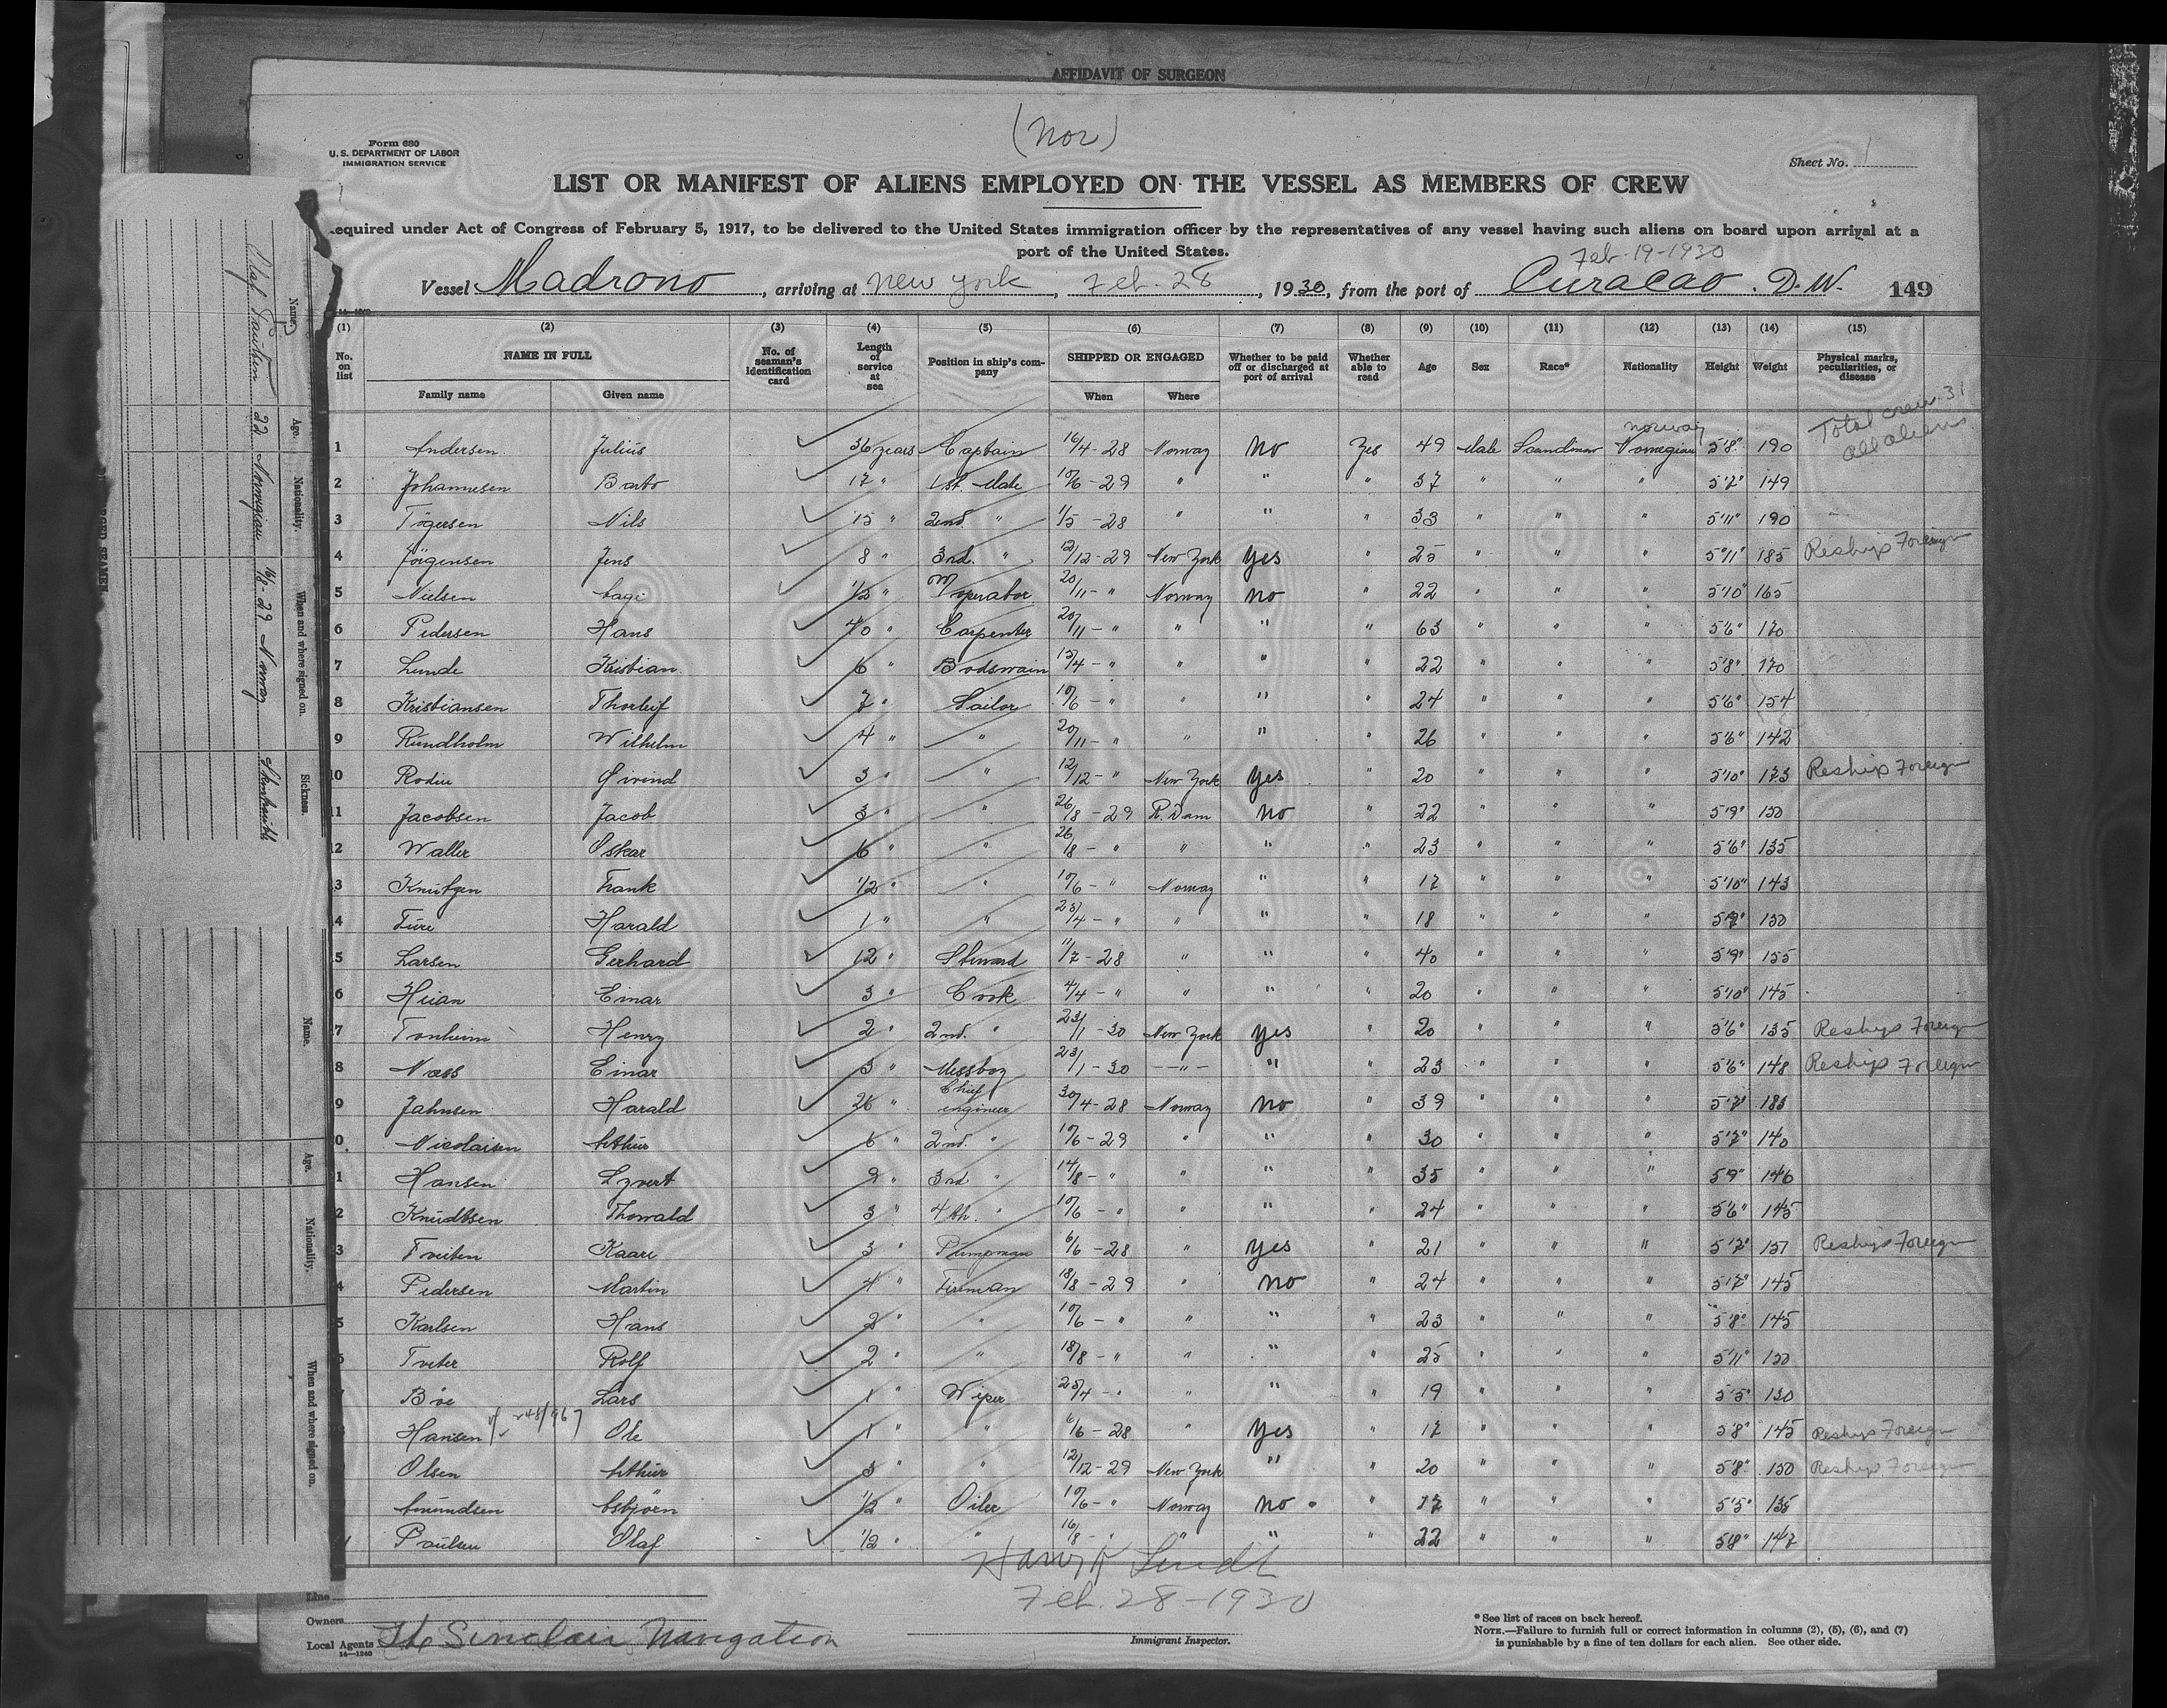 AFFIDAVIT OF SURGEON
(Nor)
Form 680
U. S. DEPARTMENT OF LABOR
IMMIGRATION SERVICE
Sheet No. 1
LIST OR MANIFEST OF ALIENS EMPLOYED ON THE VESSEL AS MEMBERS OF CREW
equired under Act of Congress of February 5, 1917, to be delivered to the United States immigration officer by the representatives of any vessel having such aliens on board upon arrival at a
port of the United States.
Feb-19-1930
Vessel Madrono, arriving at New York, Feb. 28, 1930, from the port of Curacao. D.W. 149
(1) (2) (3) (4) (5) (6) (7) (8) (9) (10) (11) (12) (13) (14) (15)
No. on list NAME IN FULL No. of seaman's identification card Length of service at sea Position in ship's company SHIPPED OR ENGAGED Whether to be paid off or discharged at port of arrival Whether able to read Age Sex Race* Nationality Height Weight Physical marks, peculiarities, or disease
Family name Given name When Where
Total crew 31
all aliens
Norway
1 Andersen Julius 36 years Captain 16/4-28 Norway No Yes 49 Male Scandinav Norwegian 5'8" 190
2 Johannesen Barto 17 " 1st. Mate 10/6-29 " " " 37 " " " 5'7" 149
3 Togersen Nils 15 " 2nd. " 1/5-28 " " " 33 " " " 5'11" 190
4 Jörgensen Jens 8 " 3rd. " 12/12-29 New York Yes " 25 " " " 5'11" 185 Reship Foreign
5 Nielsen Aage 1/2 " operator 20/11-" Norway No " 22 " " " 5'10" 165
6 Pedersen Hans 40 " Carpenter 20/11-" " " " 63 " " " 5'6" 170
7 Lunde Kristian 6 " Bodswain 13/4-" " " " 22 " " " 5'8" 170
8 Kristiansen Thorleif 7 " Sailor 10/6-" " " " 24 " " " 5'6" 154
9 Rundholm Wilhelm 4 " " 20/11-" " " " 26 " " " 5'6" 142
10 Rodin Øivind 3 " " 12/12-" New York Yes " 20 " " " 5'10" 173 Reship Foreign
11 Jacobsen Jacob 3 " " 26/8-29 R.Dam No " 22 " " " 5'9" 150
12 Waller Oskar 6 " " 26/8-" " " " 23 " " " 5'6" 135
3 Knutzen Frank 1/2 " " 10/6-" Norway " " 17 " " " 5'10" 143
4 Ture Harald 1 " " 25/4-" " " " 18 " " " 150
5 Larsen Gerhard 12 " Steward 11/7-28 " " " 40 " " " 5'9" 155
6 Huan Einar 3 " Cook 4/4-" " " " 20 " " " 5'10" 145
7 Tonheim Henry 2 " 2nd. " 23/1-30 New York Yes " 20 " " " 5'6" 135 Reship Foreign
8 Næss Einar 3 " Messboy 23/1-30 -"- " " 23 " " " 5'6" 148 Reship Foreign
9 Jahnsen Harald 26 " Chief engineer 30/4-28 Norway No " 39 " " " 5'7" 183
0 Nicolaisen Arthur 6 " 2nd. " 10/6-29 " " " 30 " " " 5'7" 140
1 Hansen Syvert 9 " 3rd " 14/8-" " " " 35 " " " 5'9" 146
2 Knudtsen Thorvald 3 " 4th. " 10/6-" " " " 24 " " " 5'6" 145
3 Tveiten Kaare 3 " Pumpman 6/6-28 " Yes " 21 " " " 5'7" 151 Reship Foreign
4 Pedersen Martin 4 " Fireman 18/8-29 " No " 24 " " " 5'7" 145
5 Karlsen Hans 2 " " 10/6-" " " " 23 " " " 5'8" 145
Tveter Rolf 2 " " 18/8-" " " " 25 " " " 5'11" 150
Bøe Lars 1 " Wiper 25/4-" " " " 19 " " " 5'5" 130
Hansen Ole 1 " " 6/6-28 " Yes " 17 " " " 5'8" 145 Reship Foreign
Olsen Arthur 3 " " 12/12-29 New York " " 20 " " " 5'8" 150 Reship Foreign
Amundsen Asbjörn 1/2 " Oiler 10/6-" Norway No " 17 " " " 5'5" 135
Paulsen Olaf 1/2 " " 16/8-" " " " 22 " " " 5'8" 147
Feb. 28-1930
Immigrant Inspector.
Line
Owners
Local Agents The Sinclair Navigation
14—1240
* See list of races on back hereof.
NOTE.—Failure to furnish full or correct information in columns (2), (5), (6), and (7)
is punishable by a fine of ten dollars for each alien. See other side.
Name. Age. Nationality. When and where signed on. Sickness.
Olaf Paulsen 22 Norwegian 16/8-29 Norway
Name. Age. Nationality. When and where signed on.